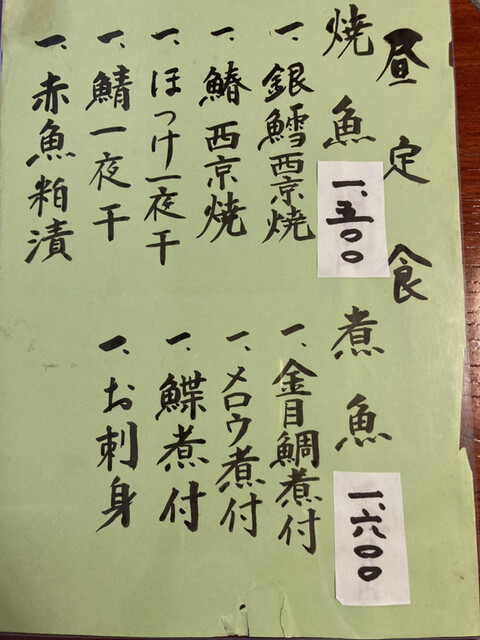 昼定食
焼魚
一、五〇〇
一、銀鱈西京焼
一、鰆西京焼
一、ほっけ一夜干
一、鯖一夜干
一、赤魚粕漬
煮魚
一、六〇〇
一、金目鯛煮付
一、メロウ煮付
一、鰈煮付
一、お刺身